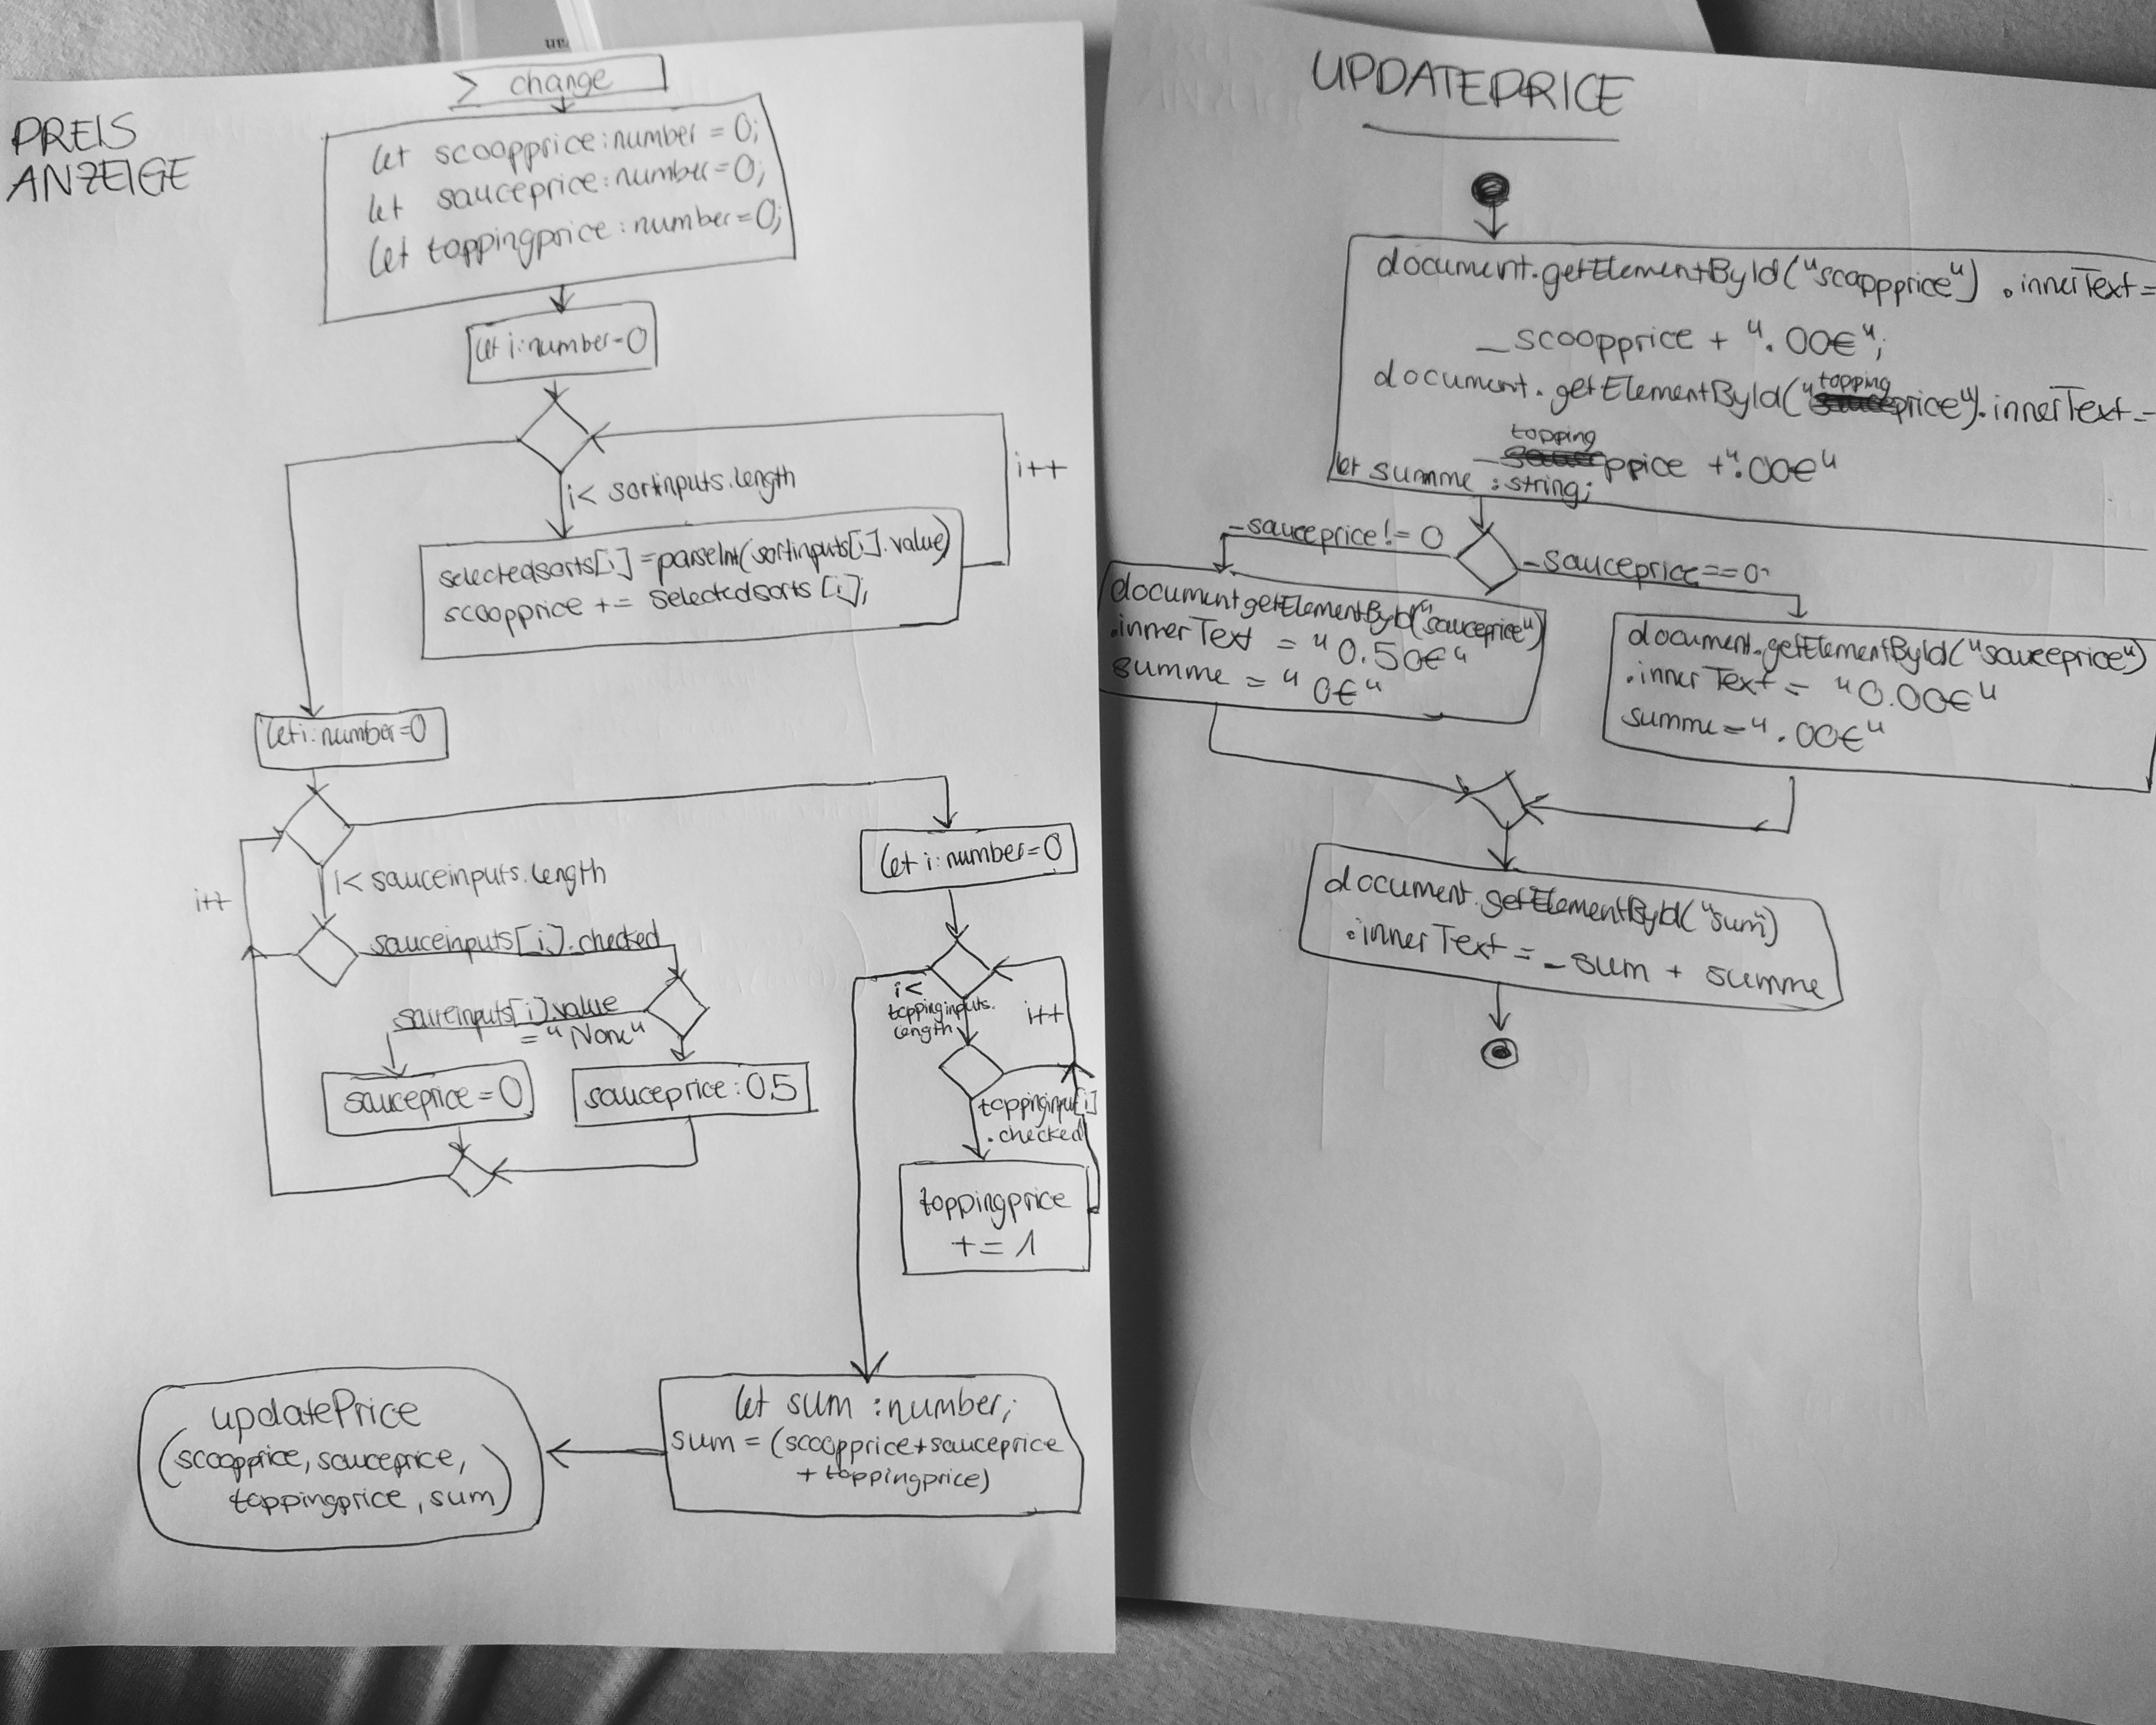 PREIS
ANZEIGE
change
let scoopprice:number = 0;
let sauceprice:number=0;
let toppingprice:number=0;
let i:number=0
i< sortinputs.length
i++
selectedsorts[i]=parseInt(sortinputs[i].value)
scoopprice += selectedsorts[i];
let i:number=0
i< sauceinputs.length
i++
sauceinputs[i].checked
sauceinputs[i].value
="None"
sauceprice=0
sauceprice:0.5
let i:number=0
i<
toppinginputs.
length
i++
toppinginput[i]
.checked
toppingprice
+= 1
let sum :number;
sum = (scoopprice+sauceprice
+ toppingprice)
updatePrice
(scoopprice, sauceprice,
toppingprice, sum)
UPDATEPRICE
document.getElementById("scoppprice") .innerText=
_scoopprice + ".00€";
document.getElementById("toppingprice").innerText=
_toppingpprice +".00€"
let summe :string;
_sauceprice!= 0
_sauceprice==0
document getElementById("sauceprice")
.innerText = "0.50€"
summe = "0€"
document.getElementById("sauceprice")
.innerText = "0.00€"
summe=".00€"
document.getElementById("sum")
.innerText = _sum + summe